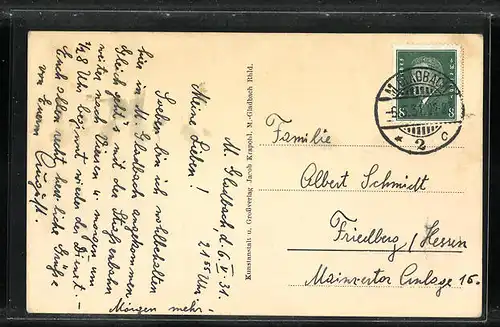 M. Gladbach, d. 6. V. 31.
21 55 Uhr.
Meine Lieben!
Soeben bin ich wohlbehalten
hier in M. Gladbach angekommen.
Gleich geht's mit der Straßenbahn
weiter nach Viersen u. morgen um
1/2 8 Uhr beginnt wieder der Dienst. -
Euch allen recht herzliche Grüße
von Eurem
August.
Morgen mehr. -
Kunstanstalt u. Großverlag Jacob Krapohl, M.-Gladbach Rhld.
8 8
M. GLADBACH
* 2 c
Familie
Albert Schmidt
Friedberg / Hessen
Mainzertor Anlage 16.